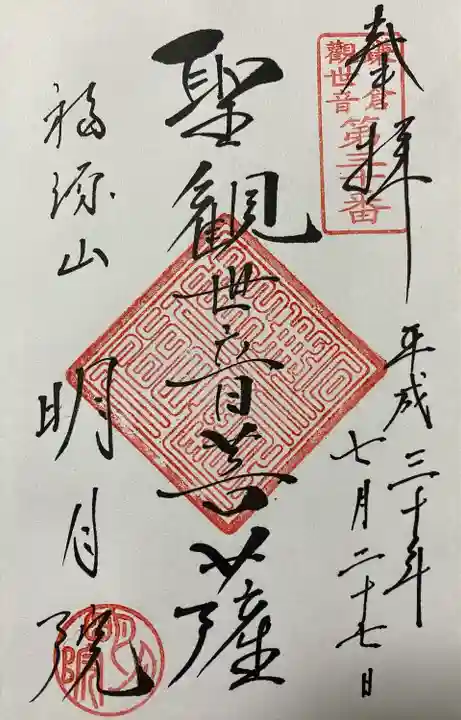 奉拝
鎌倉
觀世音
第三十番
平成三十年
七月二十七日
聖観世音菩薩
福源山
明月院